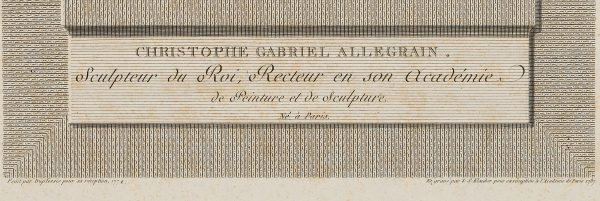 CHRISTOPHE GABRIEL ALLEGRAIN.
Sculpteur du Roi, Recteur en son Académie
de Peinture et de Sculpture.
Né à Paris.
Peint par Duplessis pour sa réception, 1774
Et gravé par I. S. Klauber pour sa réception à l'Académie de Paris 1787